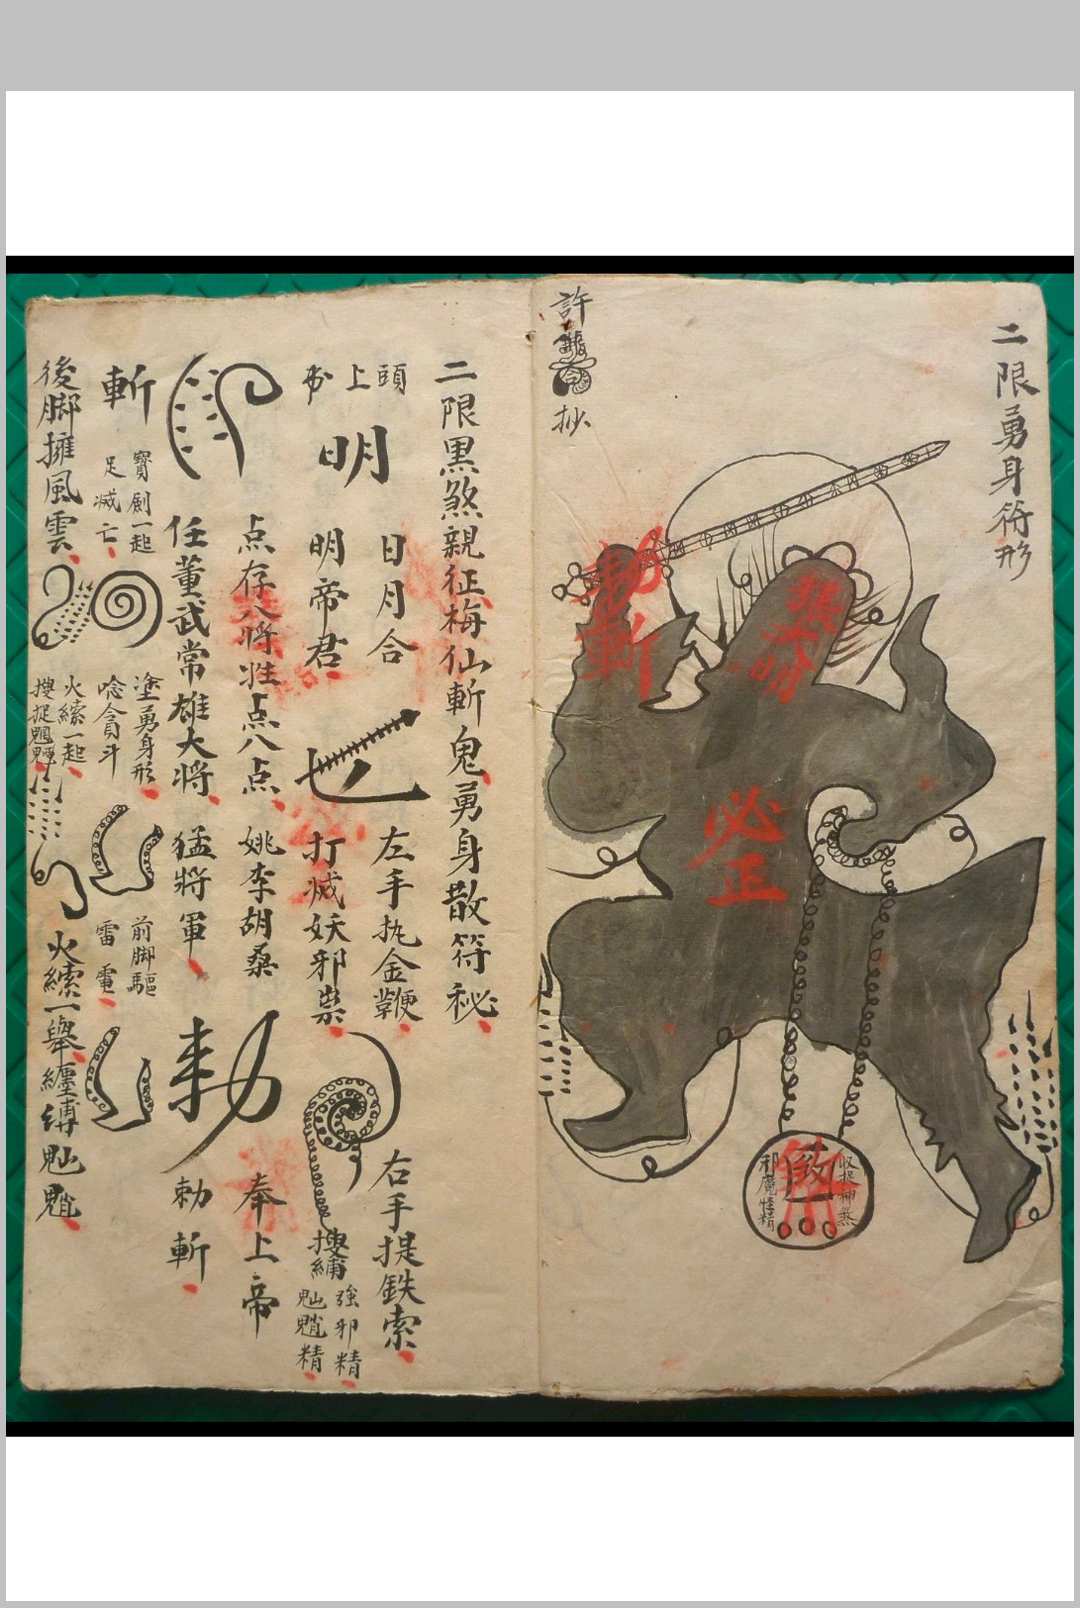 二限勇身符形
許
抄
勅斬
明
必正
煞
收捉神煞
邪魔怪精
二限黑煞親征梅仙斬鬼勇身散符秘
頭上书
明
日月合
明帝君
左手执金鞭
打滅妖邪祟
右手提鉄索
搜縛
強邪精
魈精
点存八將
点八点
姚李胡桑
奉上帝
任董武常雄大將
猛將軍
勅
勅斬
斬
寳劍一起
足滅亡
塗勇身形
唸貪斗
前脚驅
雷電
後脚擁風雲
火繂一起
搜捉
火繂一舉纏縛